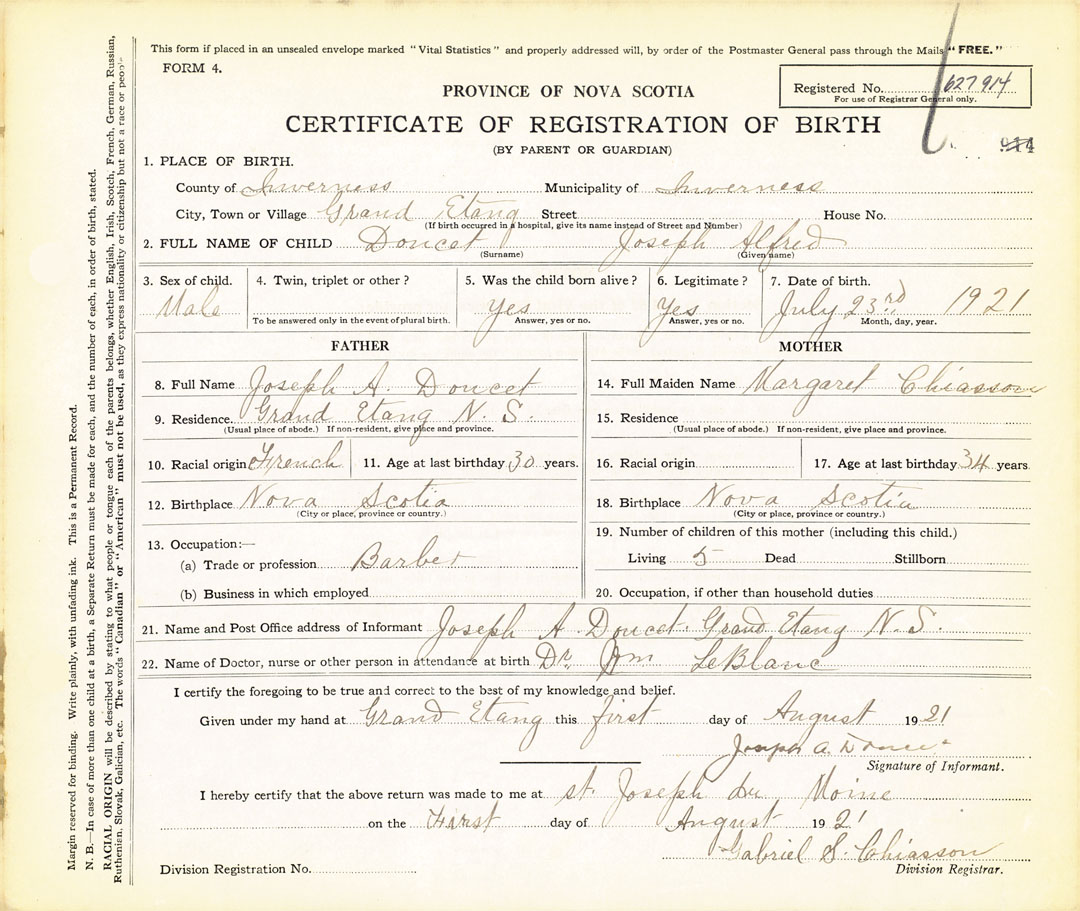 This form if placed in an unsealed envelope marked "Vital Statistics" and properly addressed will, by order of the Postmaster General pass through the Mails "FREE."
FORM 4.
Registered No. 627914
For use of Registrar General only.
PROVINCE OF NOVA SCOTIA
CERTIFICATE OF REGISTRATION OF BIRTH
(BY PARENT OR GUARDIAN)
914
1. PLACE OF BIRTH.
County of Inverness Municipality of Inverness
City, Town or Village Grand Etang Street House No.
(If birth occurred in a hospital, give its name instead of Street and Number)
2. FULL NAME OF CHILD Doucet Joseph Alfred
(Surname) (Given name)
3. Sex of child. 4. Twin, triplet or other? 5. Was the child born alive? 6. Legitimate? 7. Date of birth.
Male Yes Yes July 23rd 1921
To be answered only in the event of plural birth. Answer, yes or no. Answer, yes or no. Month, day, year.
FATHER
8. Full Name Joseph A. Doucet
9. Residence. Grand Etang N. S.
(Usual place of abode.) If non-resident, give place and province.
10. Racial origin French 11. Age at last birthday 30 years.
12. Birthplace Nova Scotia
(City or place, province or country.)
13. Occupation:—
(a) Trade or profession Barber
(b) Business in which employed
MOTHER
14. Full Maiden Name Margaret Chiasson
15. Residence
(Usual place of abode.) If non-resident, give place and province.
16. Racial origin 17. Age at last birthday 34 years
18. Birthplace Nova Scotia
(City or place, province or country.)
19. Number of children of this mother (including this child.)
Living 5 Dead Stillborn
20. Occupation, if other than household duties
21. Name and Post Office address of Informant Joseph A Doucet Grand Etang N. S.
22. Name of Doctor, nurse or other person in attendance at birth Dr. Wm LeBlanc
I certify the foregoing to be true and correct to the best of my knowledge and belief.
Given under my hand at Grand Etang this first day of August 1921
Joseph A. Doucet
Signature of Informant.
I hereby certify that the above return was made to me at st. Joseph du Moine
on the First day of August 1921
Gabriel S. Chiasson
Division Registration No. Division Registrar.
Margin reserved for binding. Write plainly, with unfading ink. This is a Permanent Record.
N. B.—In case of more than one child at a birth, a Separate Return must be made for each, and the number of each, in order of birth, stated.
RACIAL ORIGIN will be described by stating to what people or tongue each of the parents belongs, whether English, Irish, Scotch, French, German, Russian,
Ruthenian, Slovak, Galician, etc. The words "Canadian" or "American" must not be used, as they express nationality or citizenship but not a race or people